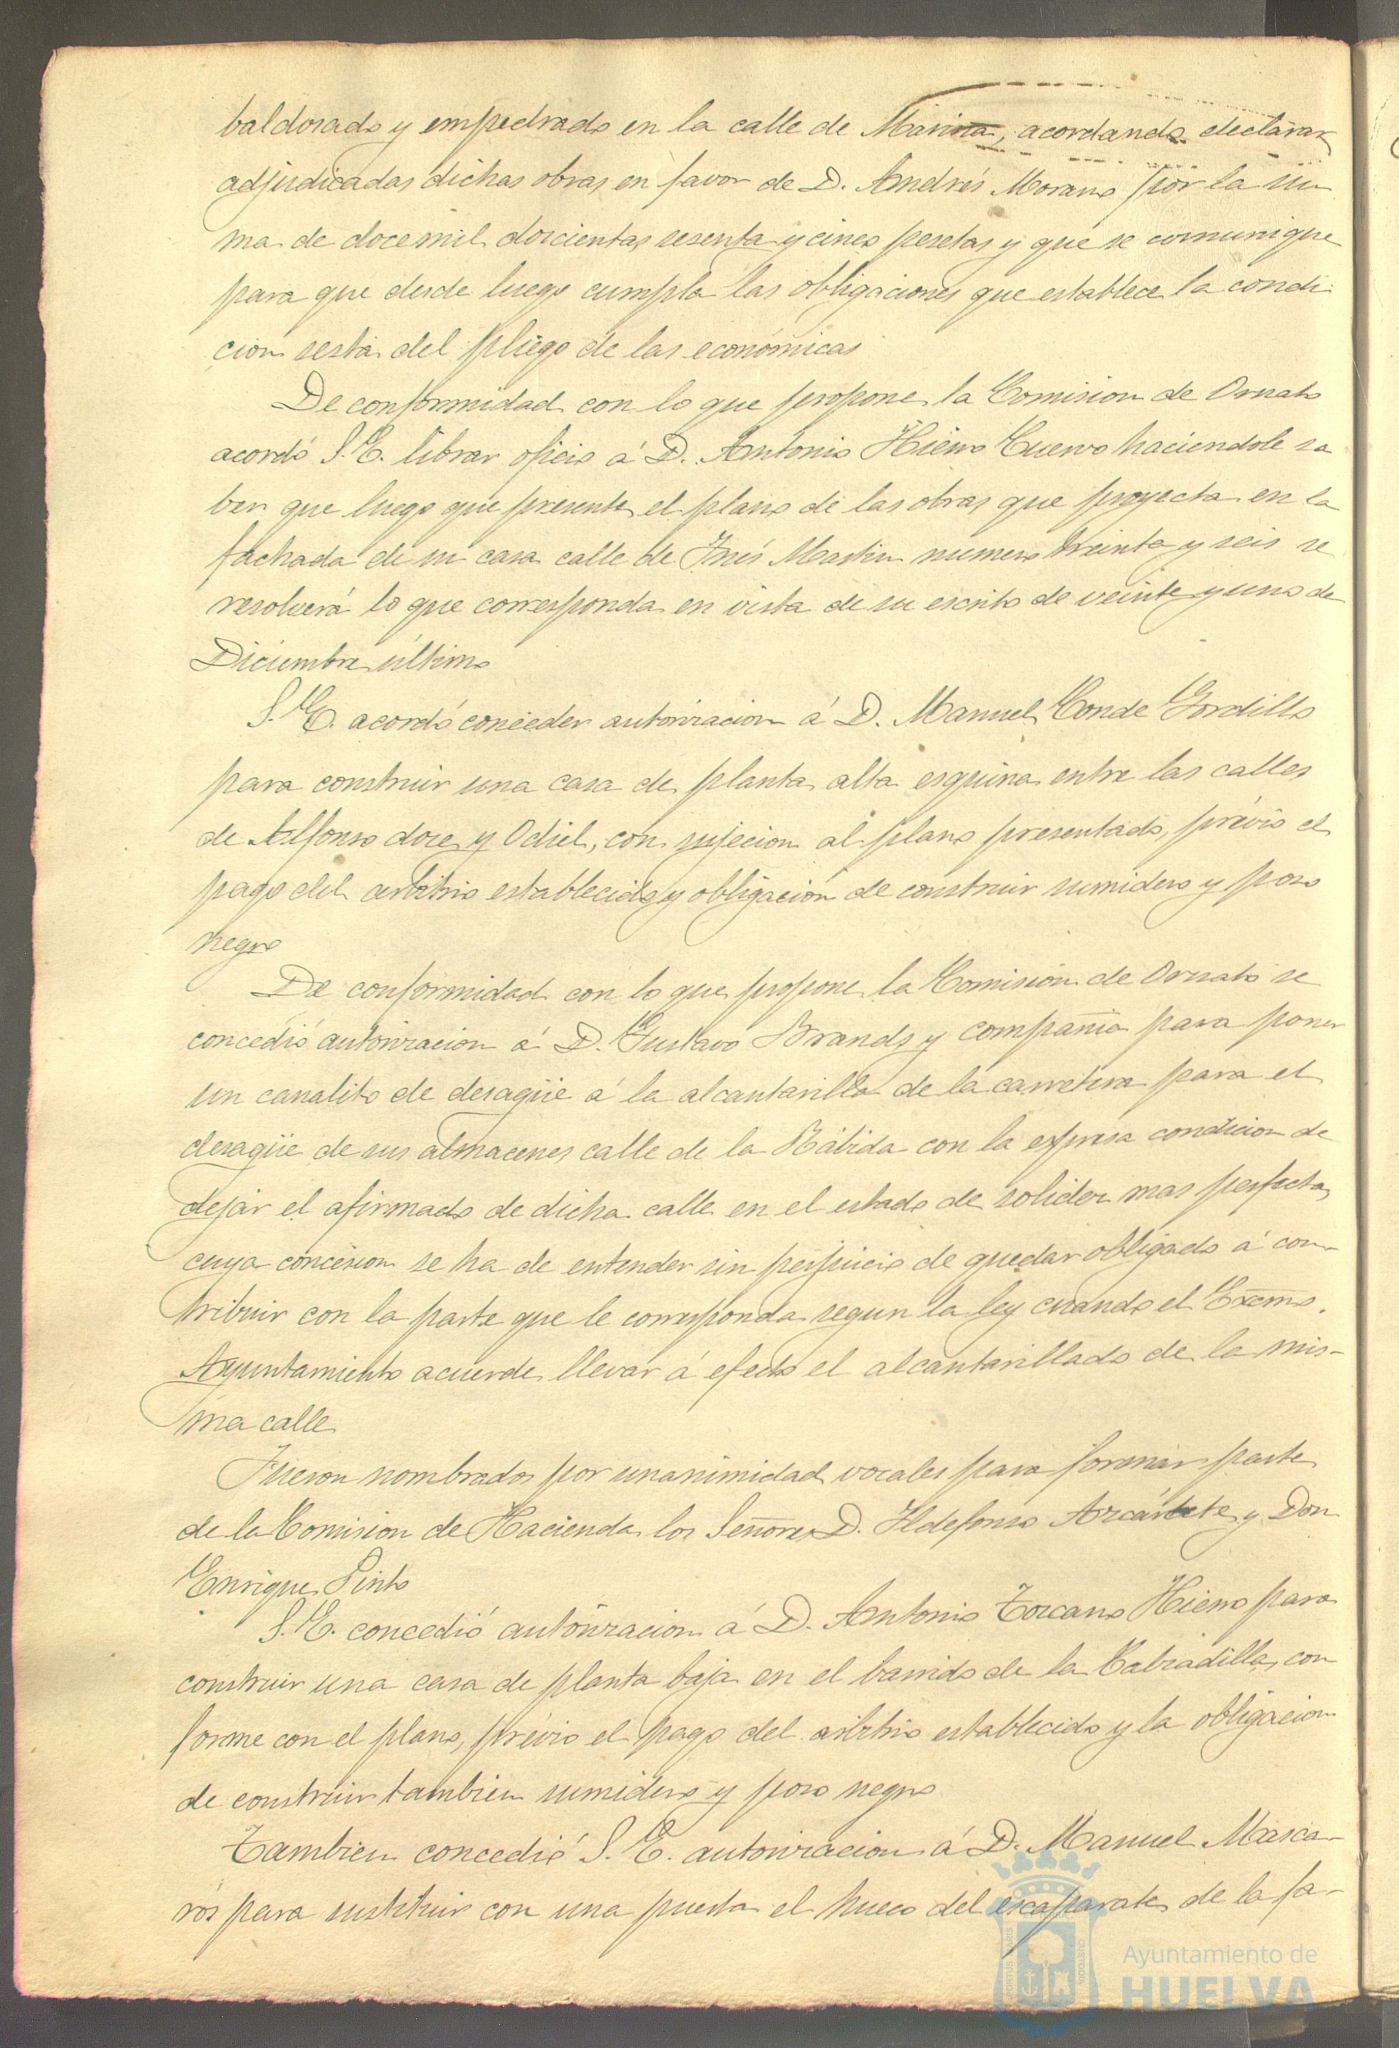 baldosado y empedrado en la calle de Marina, acordando declarar
adjudicadas dichas obras en favor de D. Andrés Morano por la su
ma de doce mil doscientas sesenta y cinco pesetas y que se comunique
para que desde luego cumpla las obligaciones que establece la condi-
cion sesta del pliego de las económicas
De conformidad con lo que propone la Comision de Ornato
acordó S. E. librar oficio á D. Antonio Hierro Cuervo haciendole sa
ber que luego que presente el plano de las obras que proyecta en la
fachada de su casa calle de Inés Martin numero treinta y seis se
resolverá lo que corresponda en vista de su escrito de veinte y uno de
Diciembre último
S. E. acordó conceder autorizacion á D. Manuel Conde Gordillo
para construir una casa de planta alta esquina entre las calles
de Alfonso doce y Odiel, con sujecion al plano presentado, prévio el
pago del arbitrio establecido y obligación de construir sumidero y poso
negro
De conformidad con lo que propone la Comisión de Ornato se
concedió autorizacion á D. Gustavo Brands y compañia para poner
un canalito de desagüe á la alcantarilla de la carretera para el
desagüe de sus almacenes calle de la Rábida con la espresa condicion de
dejar el afirmado de dicha calle en el estado de solidez mas perfecta,
cuya concesion se ha de entender sin perjuicio de quedar obligado á con-
tribuir con la parte que le corresponda segun la ley cuando el Excmo.
Ayuntamiento acuerde llevar á efecto el alcantarillado de la mis-
ma calle
Fueron nombrados por unanimidad vocales para formar parte
de la Comision de Hacienda los Señores D. Ildefonso Azcárate y Don
Enrique Pinto
S. E. concedió autorizacion á D. Antonio Toscano Hierro para
construir una casa de planta baja en el barrido de la Calzadilla, con
forme con el plano, prévio el pago del arbitrio establecido y la obligacion
de construir tambien sumidero y poso negro
Tambien concedió S. E. autorizacion á D. Manuel Masca-
rós para sustituir con una puerta el hueco del escaparate de la fa-
Ayuntamiento de
HUELVA